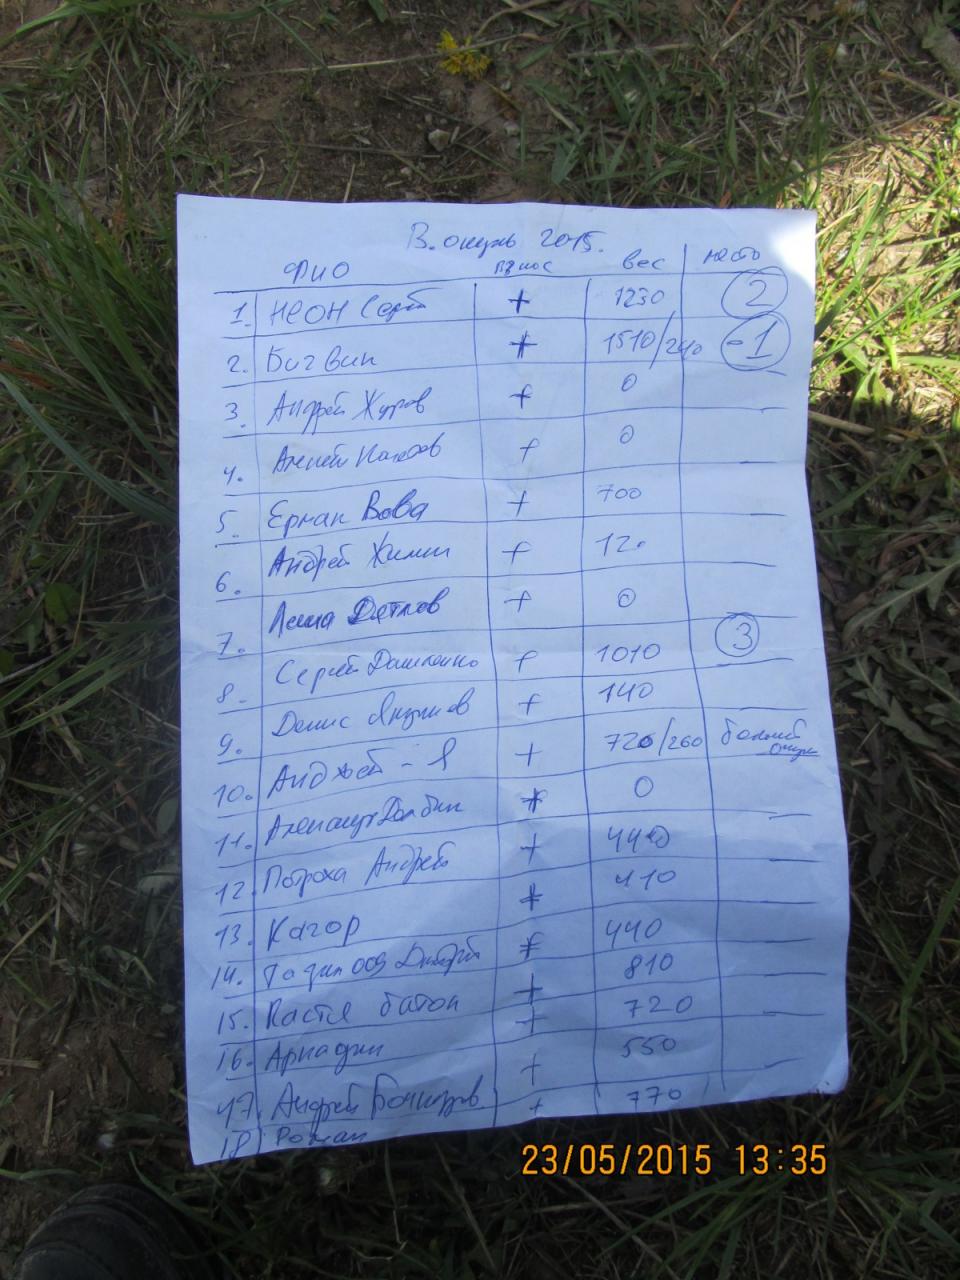 В. окунь 2015.
ФИО взнос вес место
1. НЕОН Серг + 1230 2
2. Бигвин + 1510/240 -1
3. Андрей Журов + 0
4. Алексей + 0
5. Ерман Вова + 700
6. Андрей Химич + 120
7. Леша Дятлов + 0
8. Сергей Дашленко + 1010 3
9. Денис Якушев + 140
10. Анджей - Я + 720/260 больший окунь
11. Александр Долбин + 0
12. Потроха Андрей + 440
13. Кагор + 410
14. Дмитрий + 440
15. Настя батон + 810
16. Аркадий + 720
17. Андрей Бочкарёв + 550
18 Роман + 770
23/05/2015 13:35